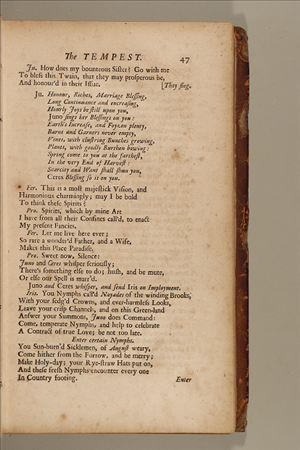 The TEMPEST. 47
Ju. How does my bounteous Sister? Go with me
To bless this Twain, that they may prosperous be,
And honour'd in their Issue. [They sing.
Ju. Honour, Riches, Marriage Blessing,
Long Continuance and encreasing,
Hourly Joys be still upon you,
Juno sings her Blessings on you:
Earth's Increase, and Foyzon plenty,
Barns and Garners never empty,
Vines, with clustring Bunches growing,
Plants, with goodly Burthen bowing:
Spring come to you at the farthest,
In the very End of Harvest!
Scarcity and Want shall shun you,
Ceres Blessing so is on you.
Fer. This is a most majestick Vision, and
Harmonious charmingly; may I be bold
To think these Spirits?
Pro. Spirits, which by mine Art
I have from all their Confines call'd, to enact
My present Fancies.
Fer. Let me live here ever;
So rare a wonder'd Father, and a Wife,
Makes this Place Paradise.
Pro. Sweet now, Silence:
Juno and Ceres whisper seriously;
There's something else to do; hush, and be mute,
Or else our Spell is marr'd.
Juno and Ceres whisper, and send Iris on Imployment.
Iris. You Nymphs call'd Nayades of the winding Brooks,
With your sedg'd Crowns, and ever-harmless Looks,
Leave your crisp Channels, and on this Green-land
Answer your Summons, Juno does Command:
Come, temperate Nymphs, and help to celebrate
A Contract of true Love; be not too late.
Enter certain Nymphs.
You Sun-burn'd Sicklemen, of August weary,
Come hither from the Furrow, and be merry;
Make Holy-day; your Rye-straw Hats put on,
And these fresh Nymphs encounter every one
In Country footing. Enter